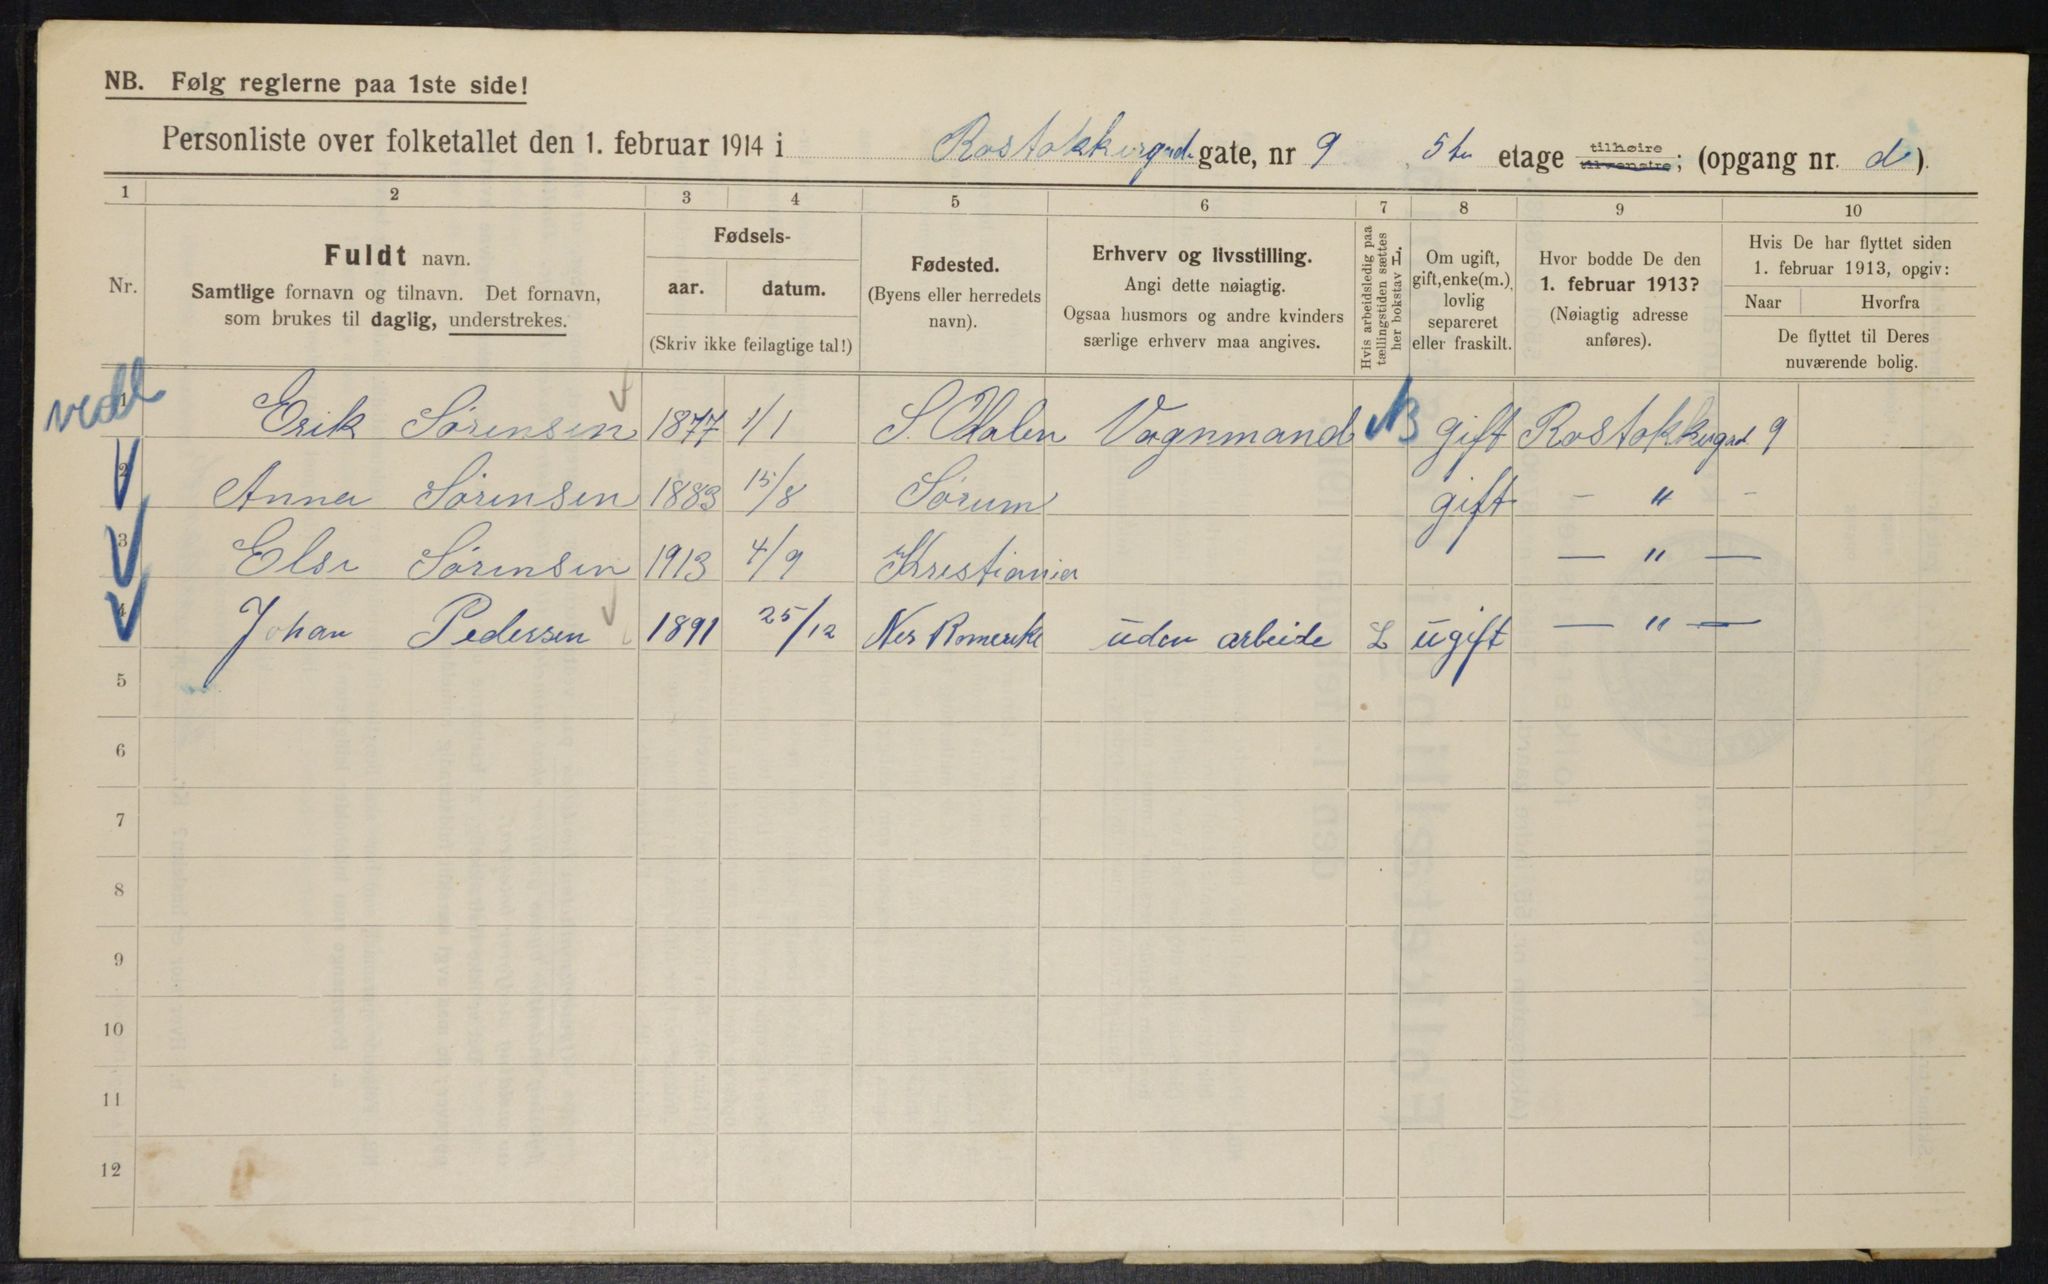 NB. Følg reglerne paa 1ste side!
Personliste over folketallet den 1. februar 1914 i Rostokkergad. gate, nr 9 5te etage tilhøire tilvenstre; (opgang nr. d).
1 2 3 4 5 6 7 8 9 10
Nr.
Fuldt navn.
Samtlige fornavn og tilnavn. Det fornavn,
som brukes til daglig, understrekes.
Fødsels-
aar. datum.
(Skriv ikke feilagtige tal!)
Fødested.
(Byens eller herredets
navn).
Erhverv og livsstilling.
Angi dette nøiagtig.
Ogsaa husmors og andre kvinders
særlige erhverv maa angives.
Hvis arbeidsledig paa
tællingstiden sættes
her bokstav L.
Om ugift,
gift, enke(m.),
lovlig
separeret
eller fraskilt.
Hvor bodde De den
1. februar 1913?
(Nøiagtig adresse
anføres).
Hvis De har flyttet siden
1. februar 1913, opgiv:
Naar Hvorfra
De flyttet til Deres
nuværende bolig.
1 Erik Sørensen 1877 1/1 S. Odalen Vognmand gift Rostokkergad 9
2 Anna Sørensen 1883 15/8 Sørum gift – " –
3 Else Sørensen 1913 4/9 Kristiania — " —
4 Johan Pedersen 1891 25/12 Nes Romerike uden arbeide L ugift — " —
5
6
7
8
9
10
11
12